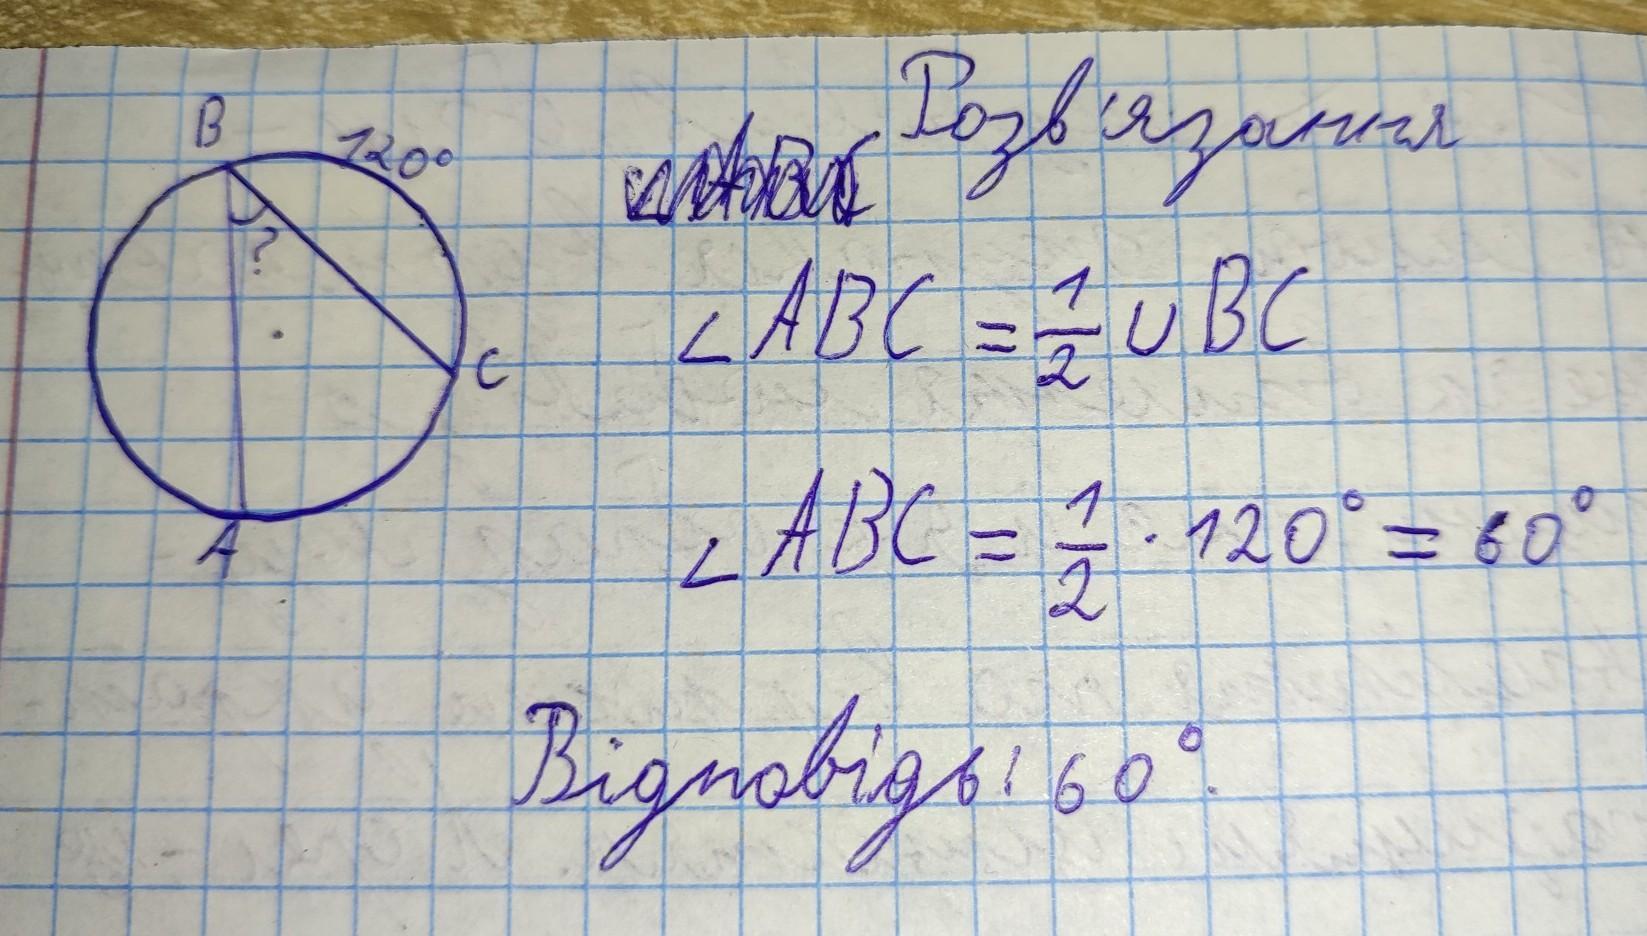 B
120°
?
C
A
Розв'язання
∠ABC = 1/2 ∪ BC
∠ABC = 1/2 · 120° = 60°
Відповідь: 60°.